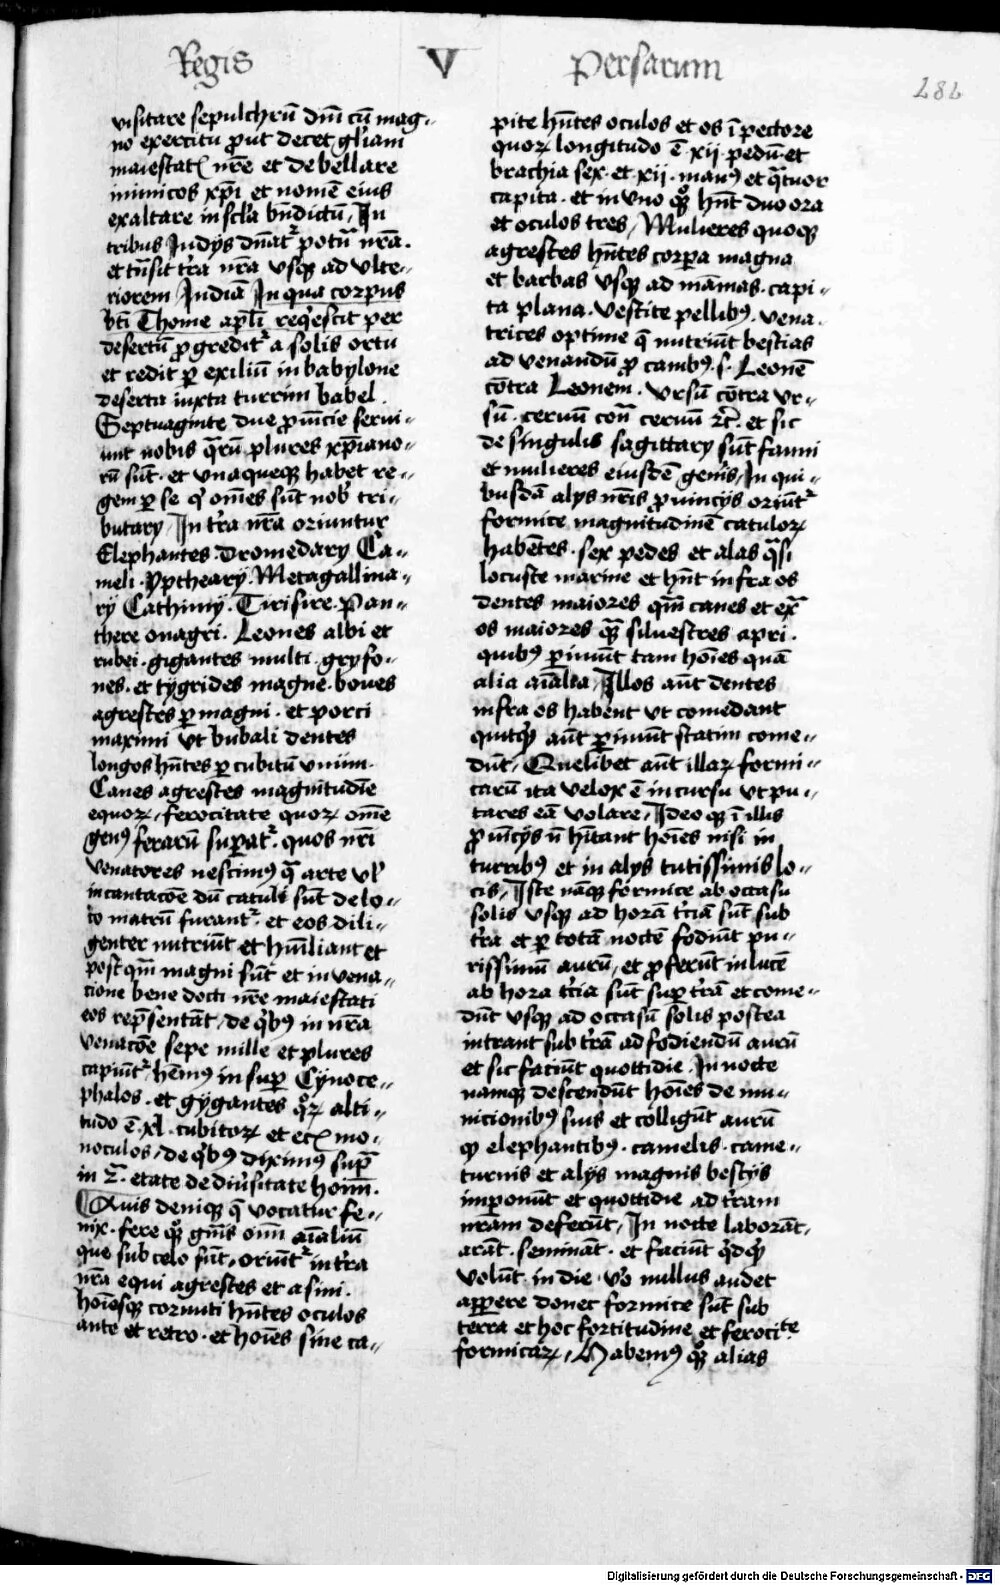 Regis
V
Persarum
282
visitare sepulchrū dm̄ cū mag-
no exercitu ꝓut decet gl̄iam
maiestatꝭ nr̄e et debellare
inimicos xp̄i et nomē eius
exaltare in sc̄la bn̄dictū, In
tribus Indijs dn̄atr̄ potn̄a nr̄a.
et tn̄sit tr̄a nr̄a vsqꝫ ad vlte-
riorem Indiā In qua corpus
bt̄i Thome apl̄i reqͥescit per
desertū ꝓgreditr̄ a solis ortū
et redit ꝑ exiliū in babylone
deserta iuxta turrim babel.
Septuaginte due ꝓuīcie serui-
unt nobis qͣrū plures xp̄iano-
rū sūt. et vnaqueqꝫ habet re-
gem ꝑ se qͥ om̄es sūt nob̄ tri-
butarÿ, In tr̄a nr̄a oriuntur
Elephantes. dromedarÿ Ca-
meli. Ypthearÿ. Metagallina-
rÿ Cathinnÿ. Tirisire. Pan-
there onagri. Leones albi et
rubei. gigantes multi. gryfo-
nes. et tÿgrides magne. boues
agrestes ꝑmagni. et porci
maximi vt bubali dentes
longos hn̄tes ꝑ cubitū vnūm.
Canes agrestes magnitudīe
equoꝝ, ferocitate quoꝝ om̄e
genꝰ ferarū suꝑatr̄. quos nr̄i
venatores nescimꝰ qͣ arte vl̄
incantacōe dū catuli sūt de lo-
co matrū furantr̄. et eos dili-
genter nutriūt et hūiliant et
postqm̄ magni sūt et in vena-
cione bene docti nr̄e maiestati
eos rep̄sentāt, de qͥbꝰ in nr̄a
venacōe sepe mille et plures
capiūtr̄, hēmꝰ insuꝑ Cÿnoce-
phalos. et gÿgantes qͦꝝ alti-
tudo ē. xl. cubitoꝝ et ecꝭ mo-
noculos, de qͥbꝰ diximꝰ sup̄
in 2ͣ. etate de diuͥsitate hoīm̄.
Auis deniqꝫ q̄ vocatur fe-
nix. fere qꝫ gn̄is om̄ aīaliū
que sub celo sūt, oriūtr̄ in tr̄a
nr̄a equi agrestes et asini.
hoīesqꝫ cornuti hn̄tes oculos
ante et retro. et hoīes sine ca-
pite hn̄tes oculos et os ī pectore
quoꝝ longitudo ē xij. pedū. et
brachia sex. et xij. manꝰ et qͣtuor
capita. et in vno qͦꝫ hn̄t duo ora
et oculos tres, Mulieres quoqꝫ
agrestes hn̄tes corꝑa magna
et barbas vsqꝫ ad māmas. capi-
ta plana. vestite pellibꝰ. vena-
trices optime q̄ nutriūt bestias
ad venandū ꝓ canibꝰ. s. Leonē
cōtra Leonem. vrsū cōtra vr-
sū. ceruū con̄ ceruū ⁊c̄. et sic
de singulis sagittarÿ sūt fauni
et mulieres eiusdē genͥis, In qui-
busdā alÿs nr̄is ꝓuincÿs oriūtr̄
formice magnitudinē catuloꝝ
habētes. sex pedes et alas qͣsi
locuste marine et hn̄t infra os
dentes maiores qm̄ canes et ex̄
os maiores qͣꝫ siluestres apri.
quibꝰ ꝑimūt tam hoīes quā
alia aīalia, Illos aūt dentes
infra os habent vt comedant
quitqͥd aūt ꝑimūt statim come-
dūt, Quelibet aūt illaꝝ formi-
carū ita velox ē in cursu vt pu-
tares eā volare, Ideoqꝫ ī illis
ꝓuīcÿs n̄ hītant hoīes nisi in
turribꝰ et in alÿs tutissimis lo-
cis, Iste nāqꝫ formice ab occasu
solis vsqꝫ ad horā tr̄ciā sūt sub
tr̄a et ꝑ totā noctē fodiūt pu-
rissimū aurū, et ꝓferūt in lucē
ab hora tr̄cia sūt suꝑ tr̄ā et come-
dūt vsqꝫ ad occasū solis postea
intrant sub tr̄ā ad fodiendū aurū
et sic faciūt quottidie. In nocte
namqꝫ descendūt hoīes de mu-
nicionibꝰ suis et colligūt aurū
qͥ elephantibꝰ. camelis. came-
turnis et alÿs magnis bestÿs
imponūt et quottidie ad tr̄am
nr̄am deferūt, In nocte laborāt,
arāt. semināt. et faciūt qͥdqͥd
volūt. in die. vͦo nullus audet
apꝑere donec formice sūt sub
terra et hoc fortitudine et ferocite
formicaꝝ, Habemꝰ qͦꝫ alias
Digitalisierung gefördert durch die Deutsche Forschungsgemeinschaft - DFG